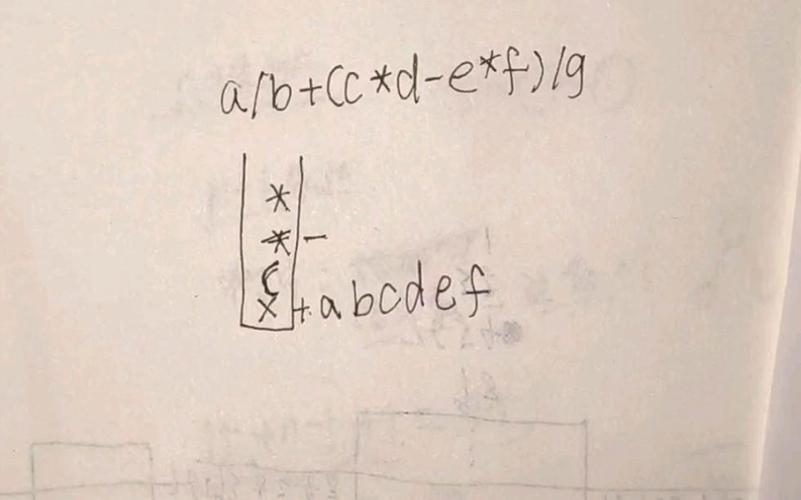 a/b+(c*d-e*f)/g
*
* -
(
x + a b c d e f